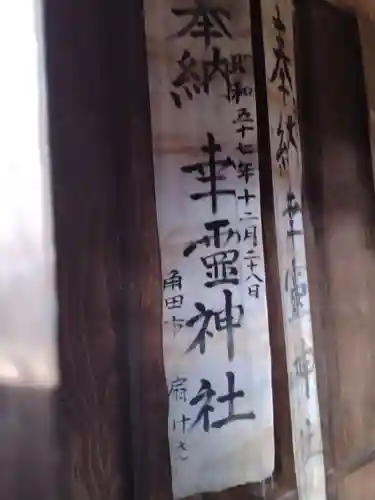 奉納 幸霊神社
昭和五十七年十二月二十八日
角田市
奉納 幸霊神社